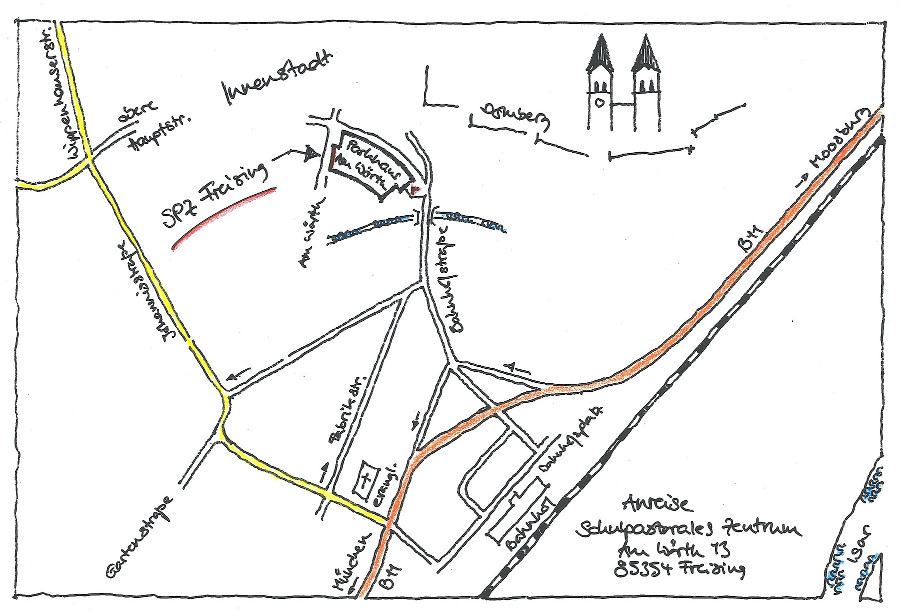 Wippenhauserstr.
obere
Hauptstr.
Innenstadt
Domberg
→ Moosburg
SPZ Freising
Parkhaus
Am Wörth
Am Wörth
B11
Johannisstraße
Bahnhofstraße
Fabrikstr.
evangl.
Bahnhofsplatz
Bahnhof
Gartenstraße
München
B11
Anreise
Schulpastorales Zentrum
Am Wörth 13
85354 Freising
Isar